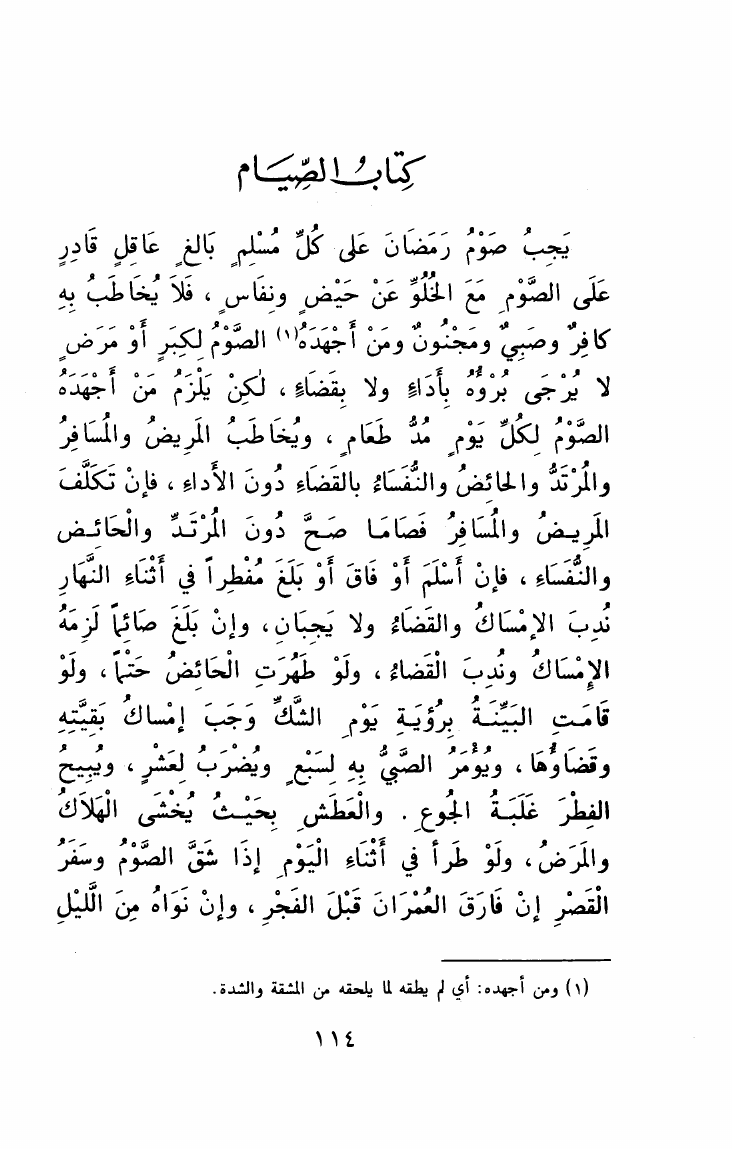 كِتَابُ الصِّيَام
يَجِبُ صَوْمُ رَمَضَانَ عَلَى كُلِّ مُسْلِمٍ بَالِغٍ عَاقِلٍ قَادِرٍ
عَلَى الصَّوْمِ مَعَ الْخُلُوِّ عَنْ حَيْضٍ ونِفَاسٍ ، فَلاَ يُخَاطَبُ بِهِ
كافِرٌ وصَبِيٌّ ومَجْنُونٌ ومَنْ أَجْهَدَهُ(١) الصَّوْمُ لِكِبَرٍ أَوْ مَرَضٍ
لا يُرْجَى بُرْؤُهُ بِأَدَاءٍ ولا بِقَضَاءٍ ، لٰكِنْ يَلْزَمُ مَنْ أَجْهَدَهُ
الصَّوْمُ لِكُلِّ يَوْمٍ مُدُّ طَعَامٍ ، ويُخَاطَبُ المَرِيضُ والمُسَافِرُ
والمُرْتَدُّ والحائِضُ والنُّفَسَاءُ بالقَضَاءِ دُونَ الأَداءِ ، فإنْ تَكَلَّفَ
المَرِيضُ والمُسَافِرُ فَصَامَا صَحَّ دُونَ المُرْتَدِّ والْحَائِضِ
والنُّفَسَاءِ ، فإنْ أَسْلَمَ أَوْ فَاقَ أَوْ بَلَغَ مُفْطِراً في أَثْنَاءِ النَّهَارِ
نُدِبَ الإمْسَاكُ والقَضَاءُ ولا يَجِبَانِ ، وإنْ بَلَغَ صَائِماً لَزِمَهُ
الإمْسَاكُ ونُدِبَ الْقَضاءُ ، ولَوْ طَهُرَتِ الْحَائِضُ حَتْماً ، ولَوْ
قَامَتِ البَيِّنَةُ بِرُؤيَةِ يَوْمِ الشَّكِّ وَجَبَ إمْساكُ بَقِيَّتِهِ
وقضَاؤُهَا ، ويُؤْمَرُ الصَّبِيُّ بِهِ لِسَبْعٍ ويُضْرَبُ لِعَشْرٍ ، ويُبِيحُ
الفِطْرَ غَلَبَةُ الجُوعِ . والْعَطَشِ بِحَيْثُ يُخْشَى الْهَلاَكُ
والمَرَضُ ، ولَوْ طَرأَ في أَثْنَاءِ الْيَوْمِ إذَا شَقَّ الصَّوْمُ وسَفَرُ
القَصْرِ إنْ فَارَقَ العُمْرَانَ قَبْلَ الفَجْرِ ، وإنْ نَوَاهُ مِنَ اللَّيْلِ
(١) ومن أجهده: أي لم يطقه لما يلحقه من المشقة والشدة.
١١٤